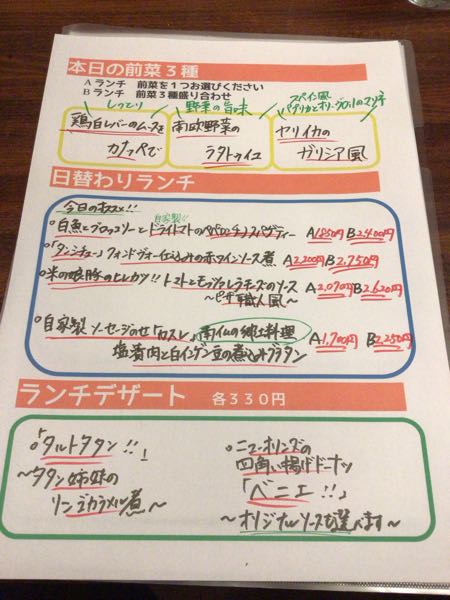 本日の前菜３種
Aランチ 前菜を１つお選びください
Bランチ 前菜３種盛り合わせ
しっとり
野菜の旨味
スペイン風
パプリカとオリーブ
鶏白レバーのムースを
カナッペで
南欧野菜の
ラタトゥイユ
ヤリイカの
ガリシア風
日替わりランチ
今日のオススメ!!
自家製!!
○白魚とブロッコリーとドライトマトのペペロンチーノスパゲティー A1,850円 B2,400円
○「タンシチュー」フォンドヴォー仕込みの赤ワインソース煮 A2,200円 B2,750円
○米の娘豚のヒレカツ!! トマトとモッツァレラチーズのソース A2,070円 B2,620円
～ピザ職人風～
○自家製ソーセージのせ「カスレ」南仏の郷土料理 A1,700円 B2,250円
塩漬肉と白インゲン豆の煮込みグラタン
ランチデザート 各３３０円
○「タルトタタン!!」
～タタン姉妹の
リンゴカラメル煮～
○ニューオリンズの
四角い揚げドーナツ
「ベニエ!!」
～オリジナルソースを選べます～